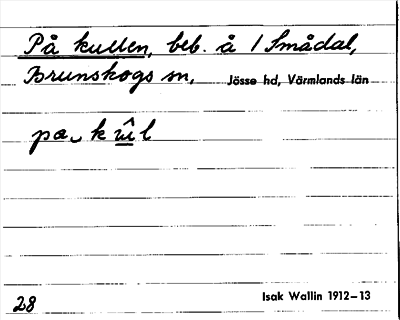 På kullen, beb. å 1 Smådal,
Brunskogs sn, Jösse hd, Värmlands län
28
Isak Wallin 1912–13